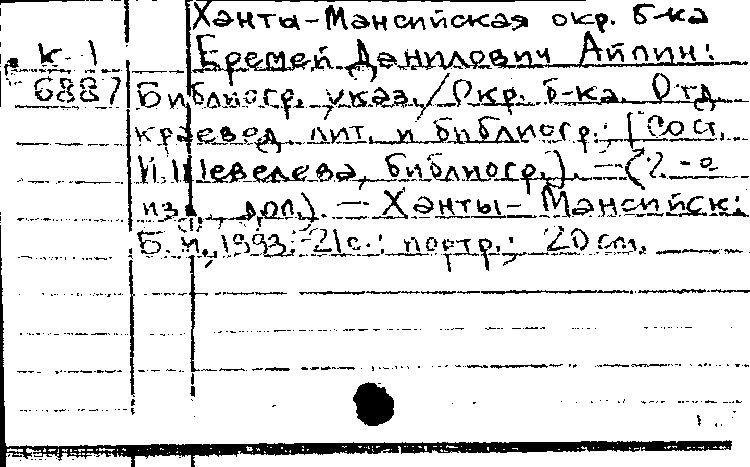 Ханты-Мансийская окр. б-ка
К-1 Еремей Данилович Айпин:
6887 Библиогр. указ./Окр. б-ка. Отд.
краевед. лит. и библиогр.; [Сост.
И. Шевелева, библиогр.]. — (2-е
изд., доп.). — Ханты-Мансийск:
Б.и., 1993. - 21с.: портр.; 20 см.